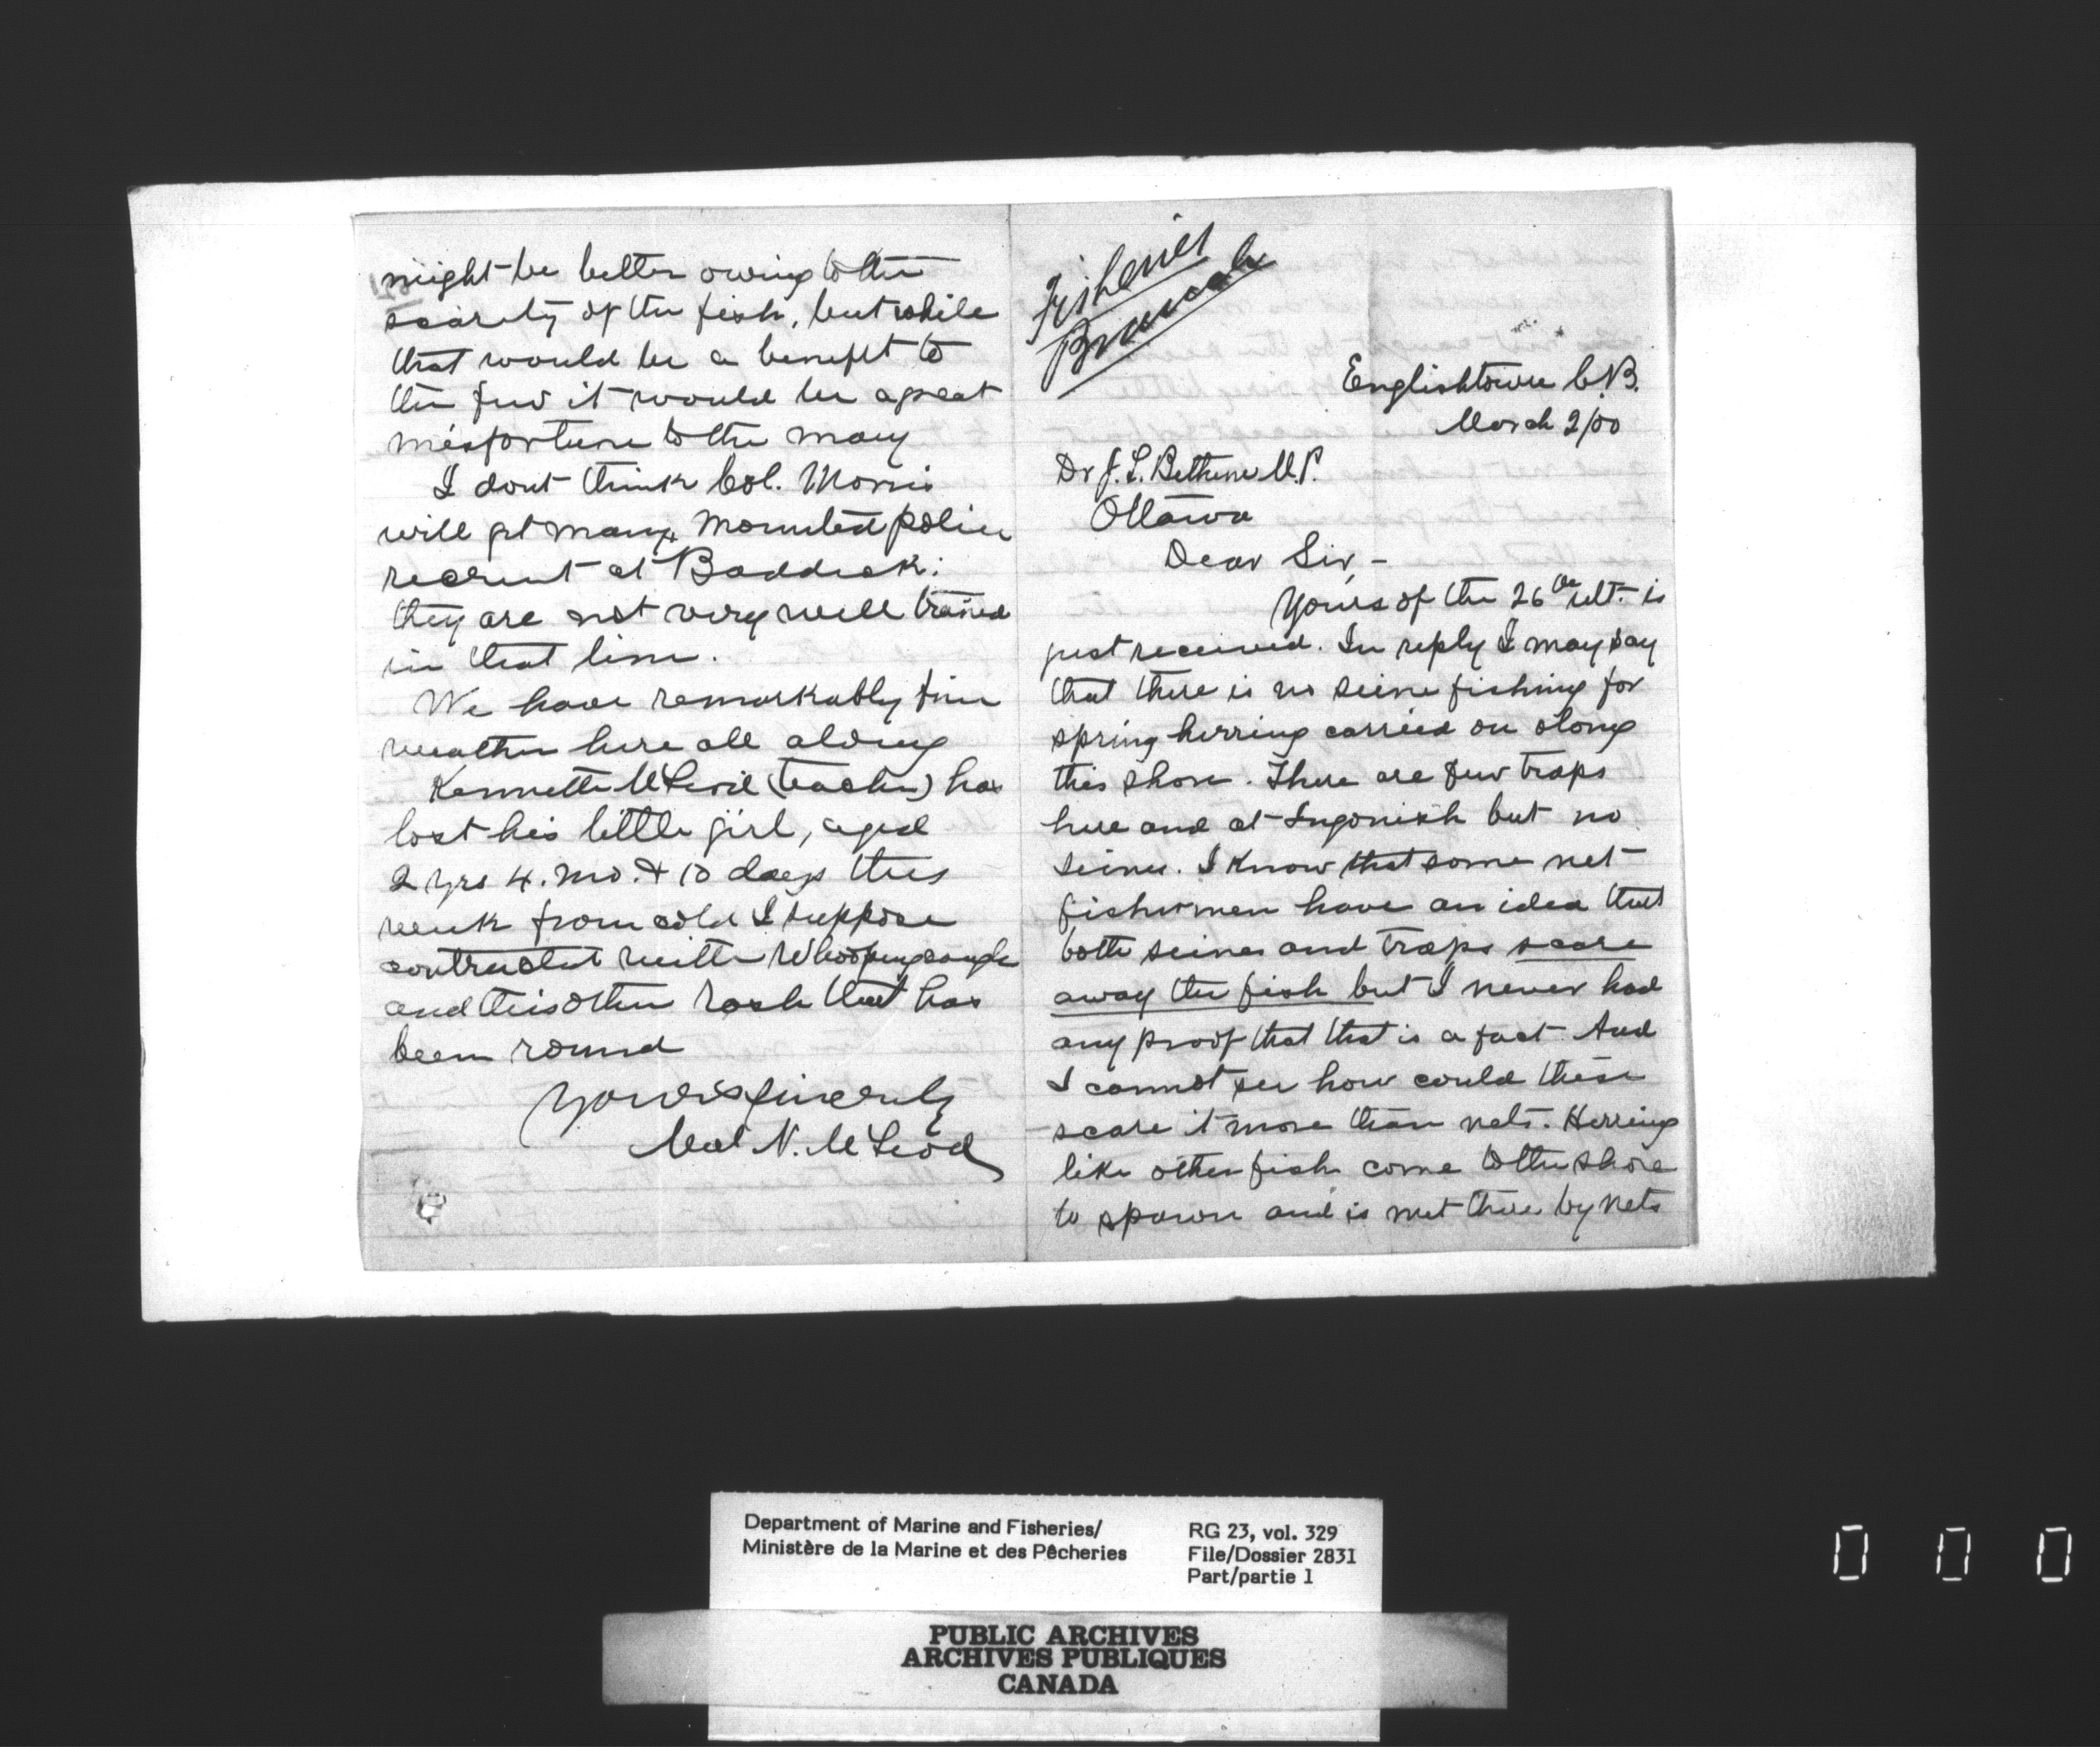 might be better owing to the
scarcity of the fish, but while
that would be a benefit to
the few it would be a great
misfortune to the many
I dont think Col. Morris
will get many mounted police
recruit at Baddeck;
they are not very well trained
in that line.
We have remarkably fine
weather here all along
Kenneth McLeod (teacher) has
lost his little girl, aged
2 yrs 4. mo. & 10 days this
week from cold I suppose
contracted with Whooping cough
and this other rash that has
been round
Yours sincerely
Mal N. McLeod
Fisheries
Branch
Englishtown C.B.
March 2/00
Dr J. L. Bethune M.P.
Ottawa
Dear Sir, -
Yours of the 26th ult. is
just received. In reply I may say
that there is no seine fishing for
spring herring carried on along
this shore. There are few traps
here and at Ingonish but no
seines. I know that some net
fishermen have an idea that
both seines and traps scare
away the fish but I never had
any proof that that is a fact. And
I cannot see how could these
scare it more than nets. Herring
like other fish come to the shore
to spawn and is met there by nets
Department of Marine and Fisheries/
Ministère de la Marine et des Pêcheries
RG 23, vol. 329
File/Dossier 2831
Part/partie 1
PUBLIC ARCHIVES
ARCHIVES PUBLIQUES
CANADA
0 0 0